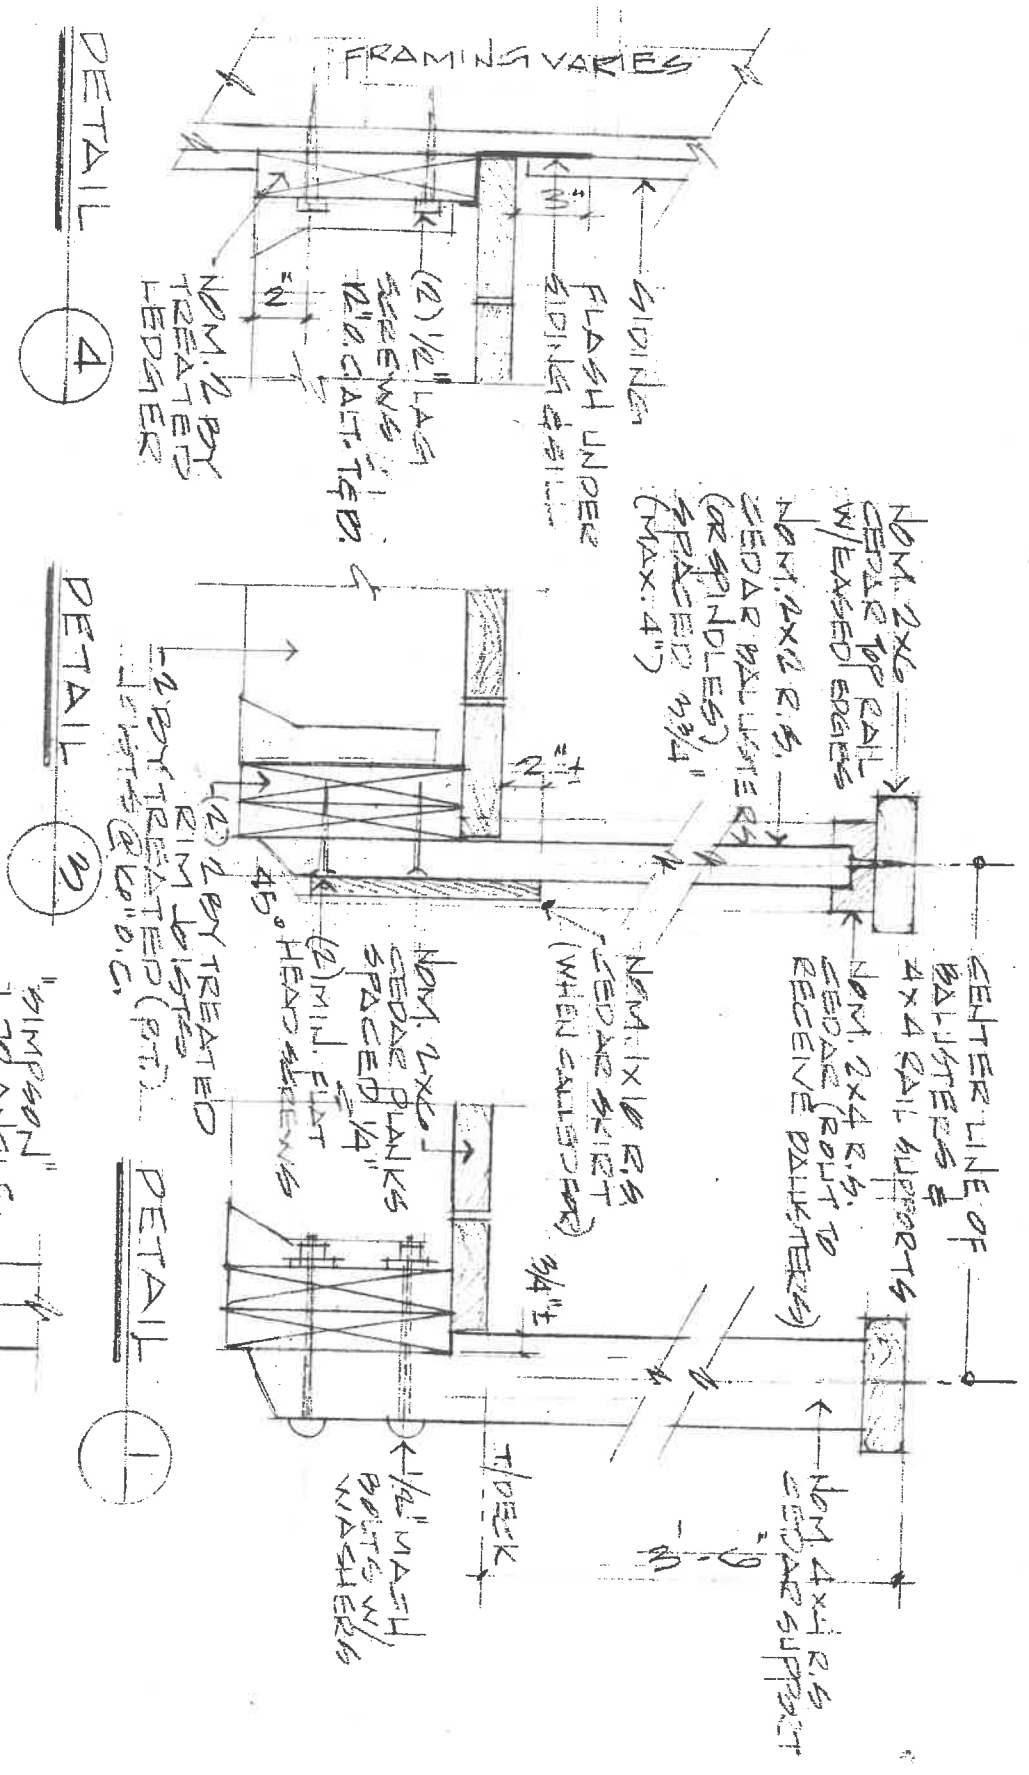 FRAMING VARIES
SIDING
FLASH UNDER
SIDING & SILL
3"
(2) 1/2" LAG
SCREWS
12" O.C. ALT. T&B.
2"
NOM. 2 BY
TREATED
LEDGER
DETAIL
4
NOM. 2X6
CEDAR TOP RAIL
W/EASED EDGES
NOM. 2X2 R.S.
CEDAR BALUSTERS
(OR SPINDLES)
SPACED 3 3/4"
(MAX. 4")
2"±
CENTER LINE OF
BALUSTERS &
4X4 RAIL SUPPORTS
NOM. 2X4 R.S.
CEDAR (ROUT TO
RECEIVE BALUSTERS)
NOM. 1X R.S
CEDAR SKIRT
(WHEN CALLED FOR)
NOM. 2X6
CEDAR PLANKS
SPACED 1/4"
(2) MIN. FLAT
HEAD SCREWS
45°
(2) 2 BY TREATED
RIM JOISTS
2 BY TREATED (P.T.)
JOISTS @ O.C.
DETAIL
3
3/4"±
T/DECK
3'-6"
NOM. 4X4 R.S
CEDAR SUPPORT
1/2" MACH
BOLTS W/
WASHERS
DETAIL
1
"SIMPSON"